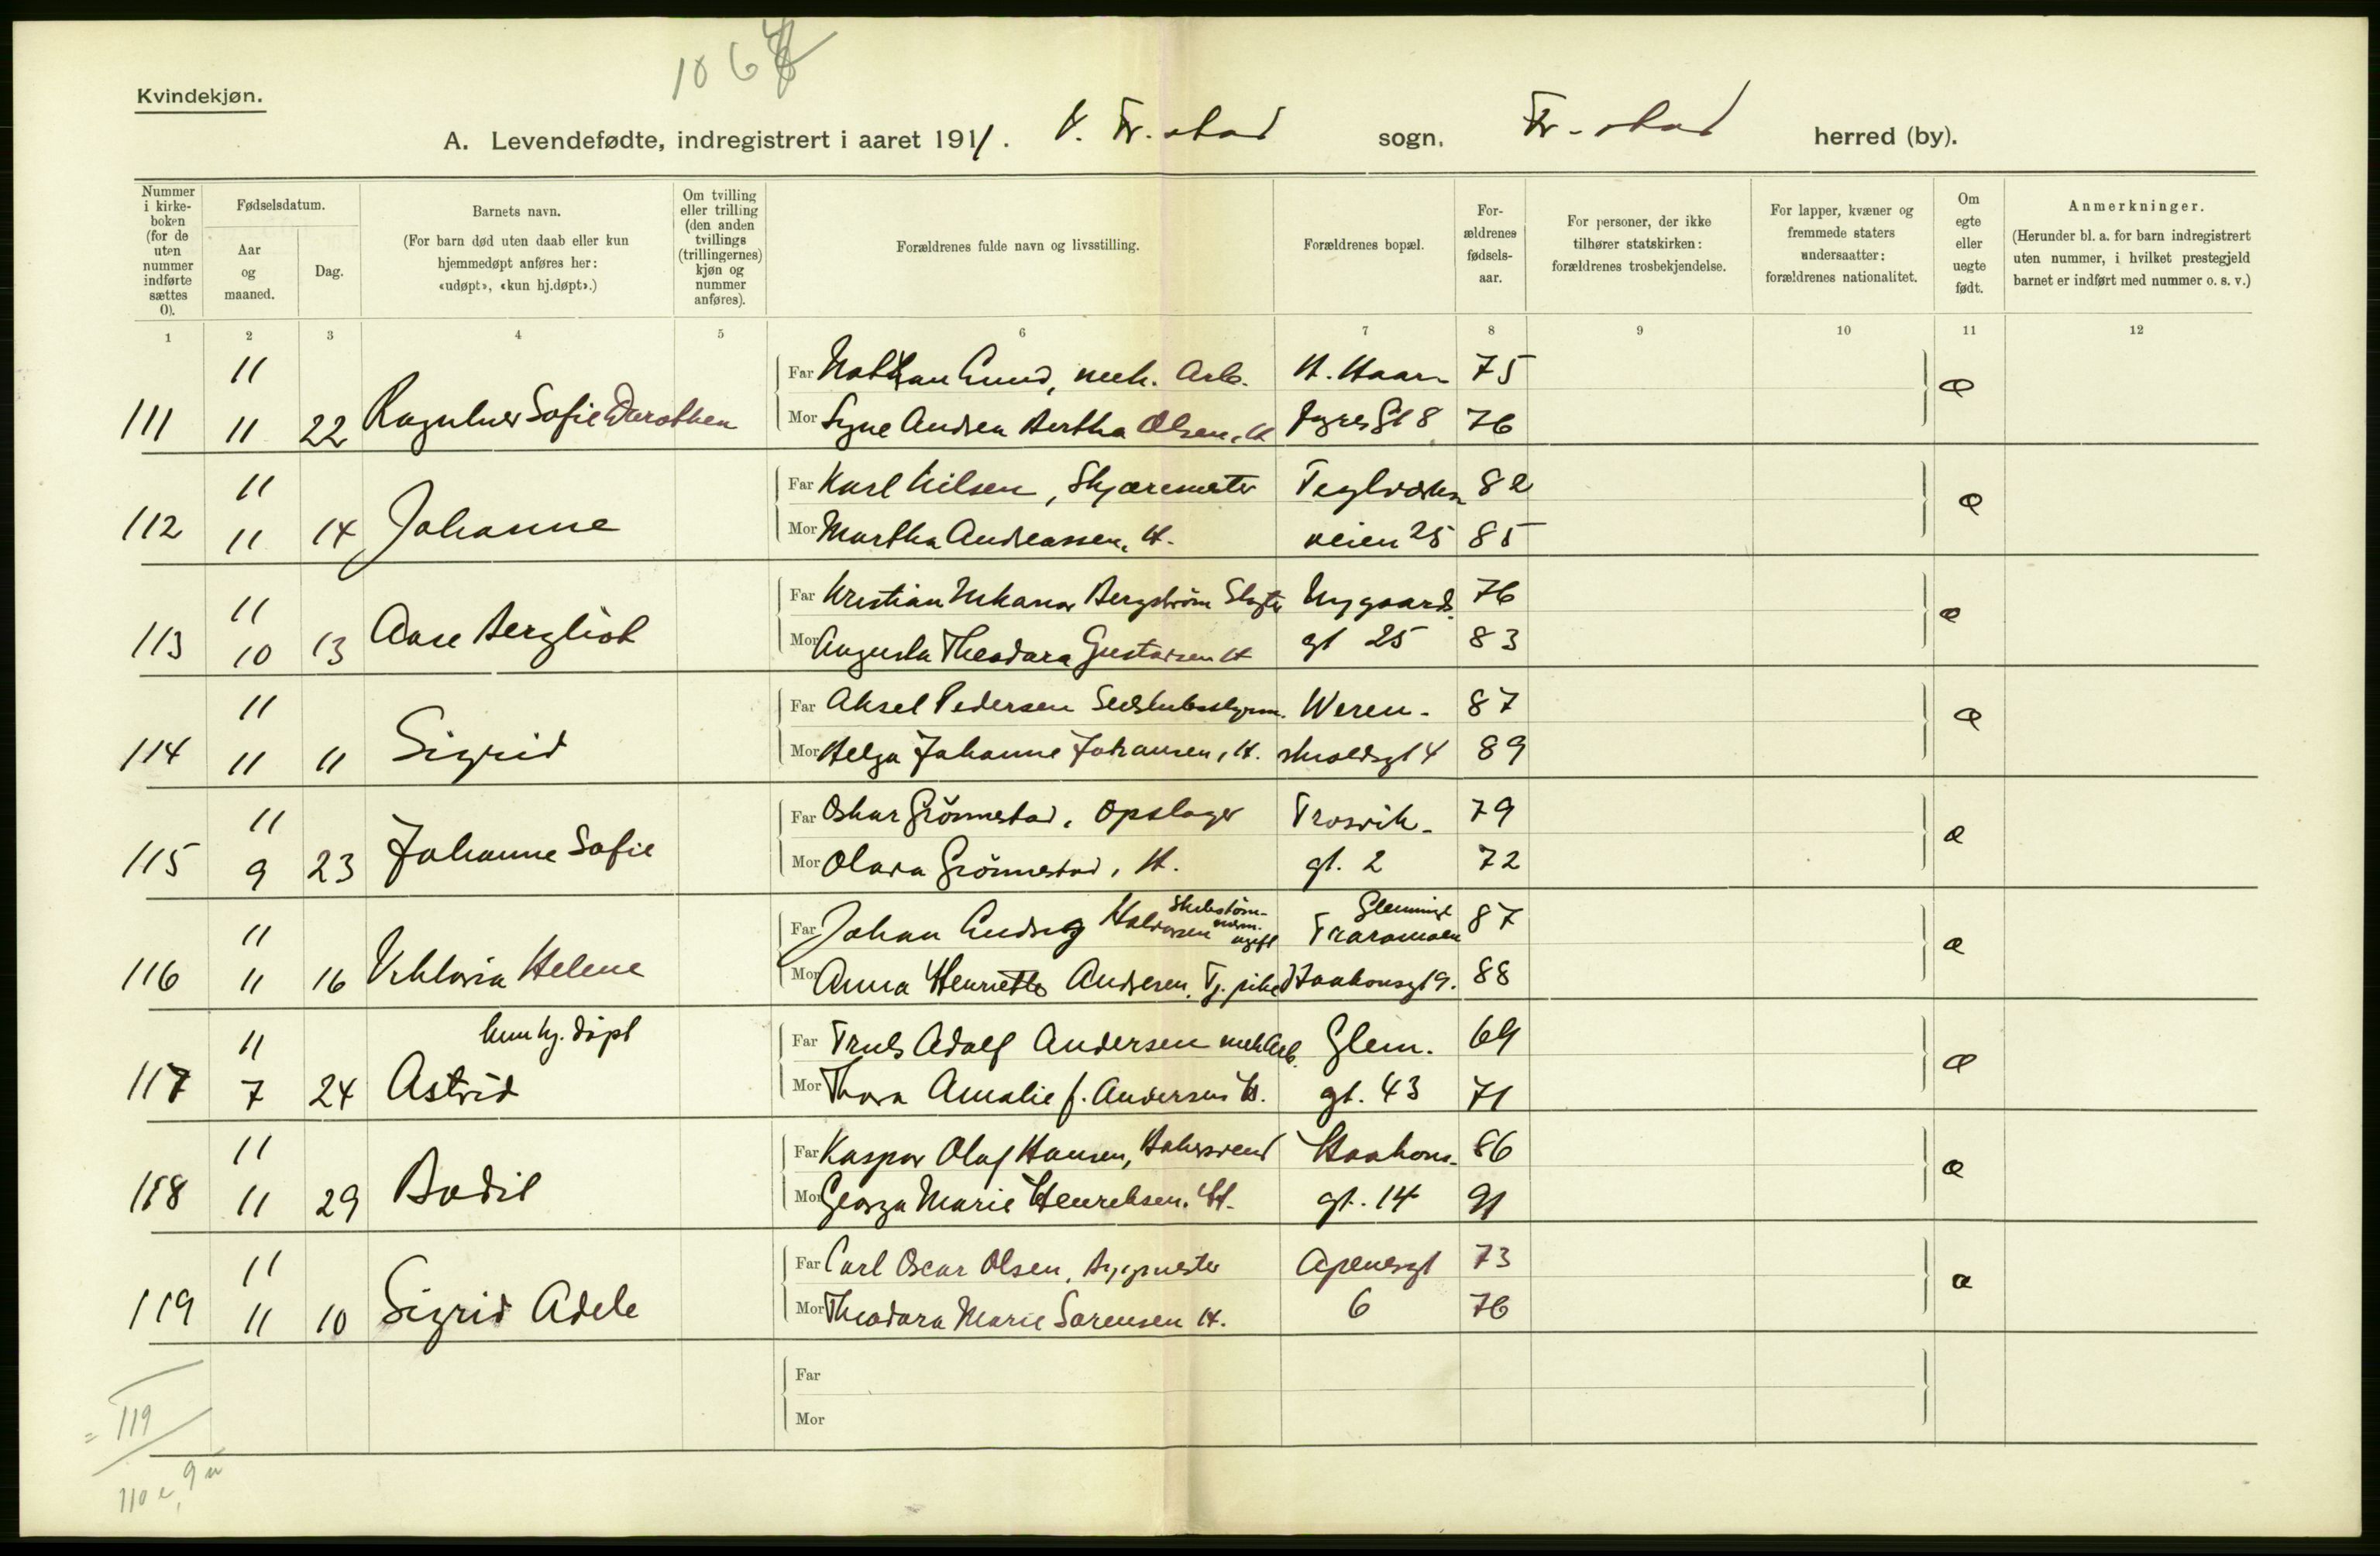 Kvindekjøn.
A. Levendefødte, indregistrert i aaret 1911. V. Fr.stad sogn. Fr-stad herred (by).
Nummer i kirke-boken (for de uten nummer indførte sættes 0).
Fødselsdatum.
Aar og maaned.
Dag.
Barnets navn.
(For barn død uten daab eller kun hjemmedøpt anføres her: «udøpt», «kun hj.døpt».)
Om tvilling eller trilling (den anden tvillings (trillingernes) kjøn og nummer anføres).
Forældrenes fulde navn og livsstilling.
Forældrenes bopæl.
For-ældrenes fødsels-aar.
For personer, der ikke tilhører statskirken: forældrenes trosbekjendelse.
For lapper, kvæner og fremmede staters undersaatter: forældrenes nationalitet.
Om egte eller uegte født.
Anmerkninger.
(Herunder bl. a. for barn indregistrert uten nummer, i hvilket prestegjeld barnet er indført med nummer o. s. v.)
1 2 3 4 5 6 7 8 9 10 11 12
11 Far Nathan Lund, mek. Arb. H. Haar- 75 e
111 11 22 Sofie Dorothea Mor Signe Andrea Bertha Olsen, H gt 8 76
11 Far Karl Nilsen, Teglverks 82 e
112 11 14 Johanne Mor Martha Andreassen, H. veien 25 85
11 Far Kristian Bergstrøm Nygaards 76 e
113 10 13 Aase Bergliot Mor Augusta Theodora Gustavsen H gt 25 83
11 Far Aksel Pedersen Weren- 87 e
114 11 11 Sigrid Mor Helga Johanne Johansen, H. skioldsgt 4 89
11 Far Oskar Grönnestad, Opslager Trosvik- 79 e
115 9 23 Johanne Sofie Mor Olava Grönnestad, H. gt. 2 72
11 Far Johan Ludvig Halvorsen ugift Glemmige Traramoen 87 e
116 11 16 Viktoria Helene Mor Anna Henriette Andresen, Tj. pike Haakonsgt 9. 88
11 kun hj. døpt Far Truls Adolf Andersen mek Arb. Glem. 69 e
117 7 24 Astrid Mor Thora Amalie f. Andersen H. gt. 43 71
11 Far Kaspar Olaf Hansen, Bakersvend Haakons- 86 e
118 11 29 Bodil Mor Georga Marie Henriksen. H. gt. 14 91
11 Far Carl Oscar Olsen, Bygmester Apenesgt 73 e
119 11 10 Sigrid Adele Mor Theodora Marie Sørensen H. 6 76
Far
Mor
= 119
110 e, 9 u